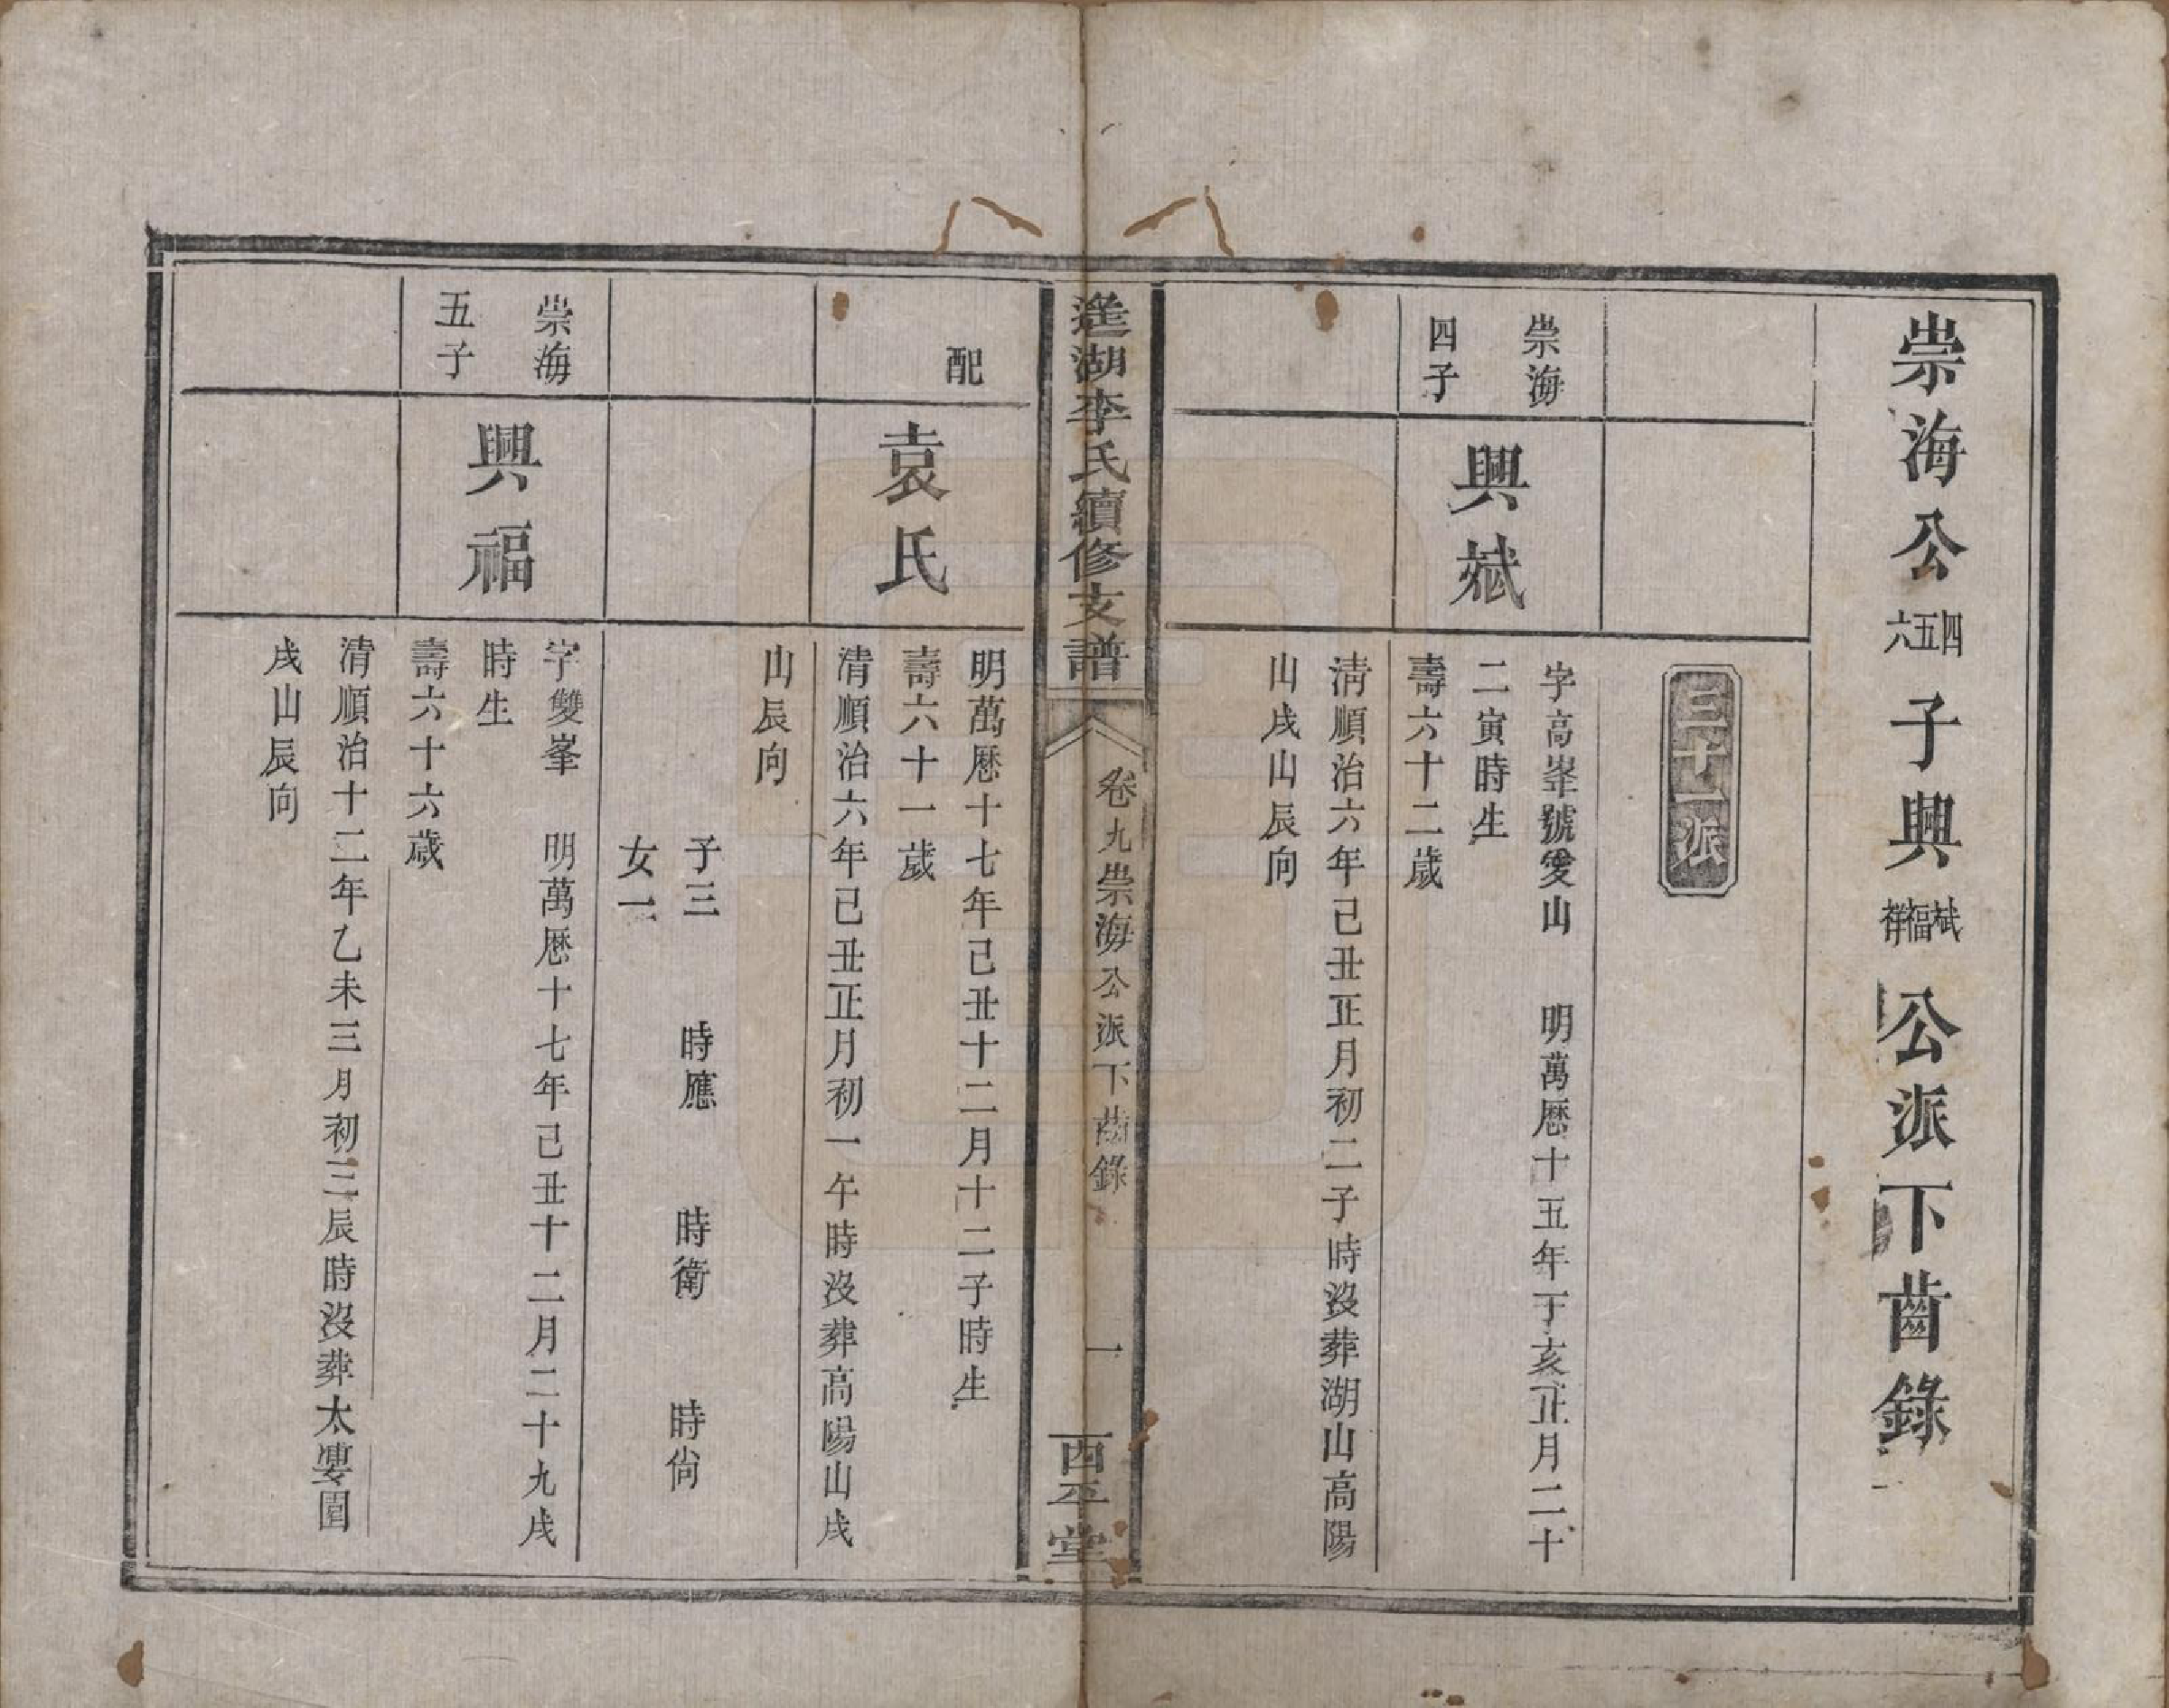 崇海公四五六子興斌福祥公派下齒錄
三十一派
崇海
四子
興斌
字高峯號愛山　明萬曆十五年丁亥正月二十
二寅時生
壽六十二歲
清順治六年己丑正月初二子時沒葬湖山高陽
山戌山辰向
湖李氏續修支譜
卷九崇海公派下齒錄
一
西平堂
配
袁氏
明萬曆十七年己丑十二月十二子時生
壽六十一歲
清順治六年己丑正月初一午時沒葬高陽山戌
山辰向
子三　時應　時衛　時尙
女一
崇海
五子
興福
字雙峯　明萬曆十七年己丑十二月二十九戌
時生
壽六十六歲
清順治十二年乙未三月初三辰時沒葬太婁園
戌山辰向